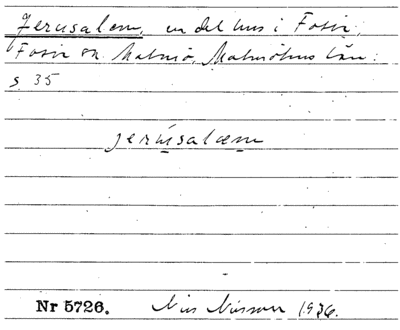 Jerusalem, en del hus i Fosie,
Fosie sn. Malmö, Malmöhus län:
s. 35
jerúsalæm
Nr 5726. Nils Nilsson 1936.